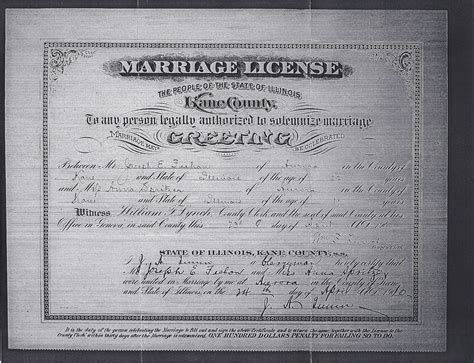 MARRIAGE LICENSE
THE PEOPLE OF THE STATE OF ILLINOIS,
Kane County.
To any person legally authorized to solemnize marriage
MARRIAGE MAY BE CELEBRATED
GREETING
Between Mr. Joseph E. of Aurora in the County of
Kane and State of Illinois of the age of
and M Anna of Aurora in the County of
Kane and State of Illinois of the age of
Witness William F. Lynch, County Clerk and the seal of said County at his
Office in Geneva, in said County this day of April
STATE OF ILLINOIS, KANE COUNTY, s.s.
I, J. A. a Clergyman
Mr Joseph E. and Miss Anna
were united in Marriage by me at Aurora in the County of Kane
and State of Illinois, on the 24th day of April
J. A.
It is the duty of the person celebrating the Marriage to fill out and sign the above Certificate and to return the same, together with the License to the
County Clerk within thirty days after the Marriage is solemnized. ONE HUNDRED DOLLARS PENALTY FOR FAILING SO TO DO.